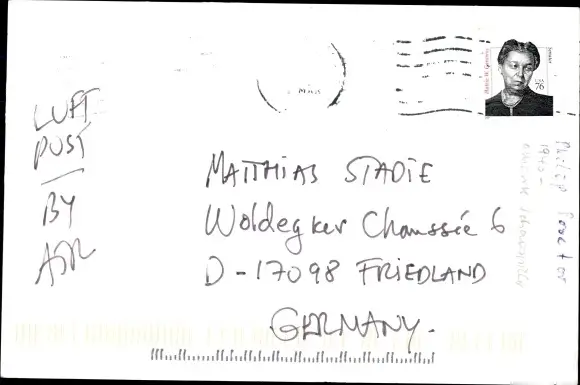 Hattie W. Caraway
senator
USA
76
LUFT
POST
BY
AIR
MATTHIAS STADIE
Woldegker Chaussée 6
D-17098 FRIEDLAND
GERMANY.
Philip Proctor
1940-